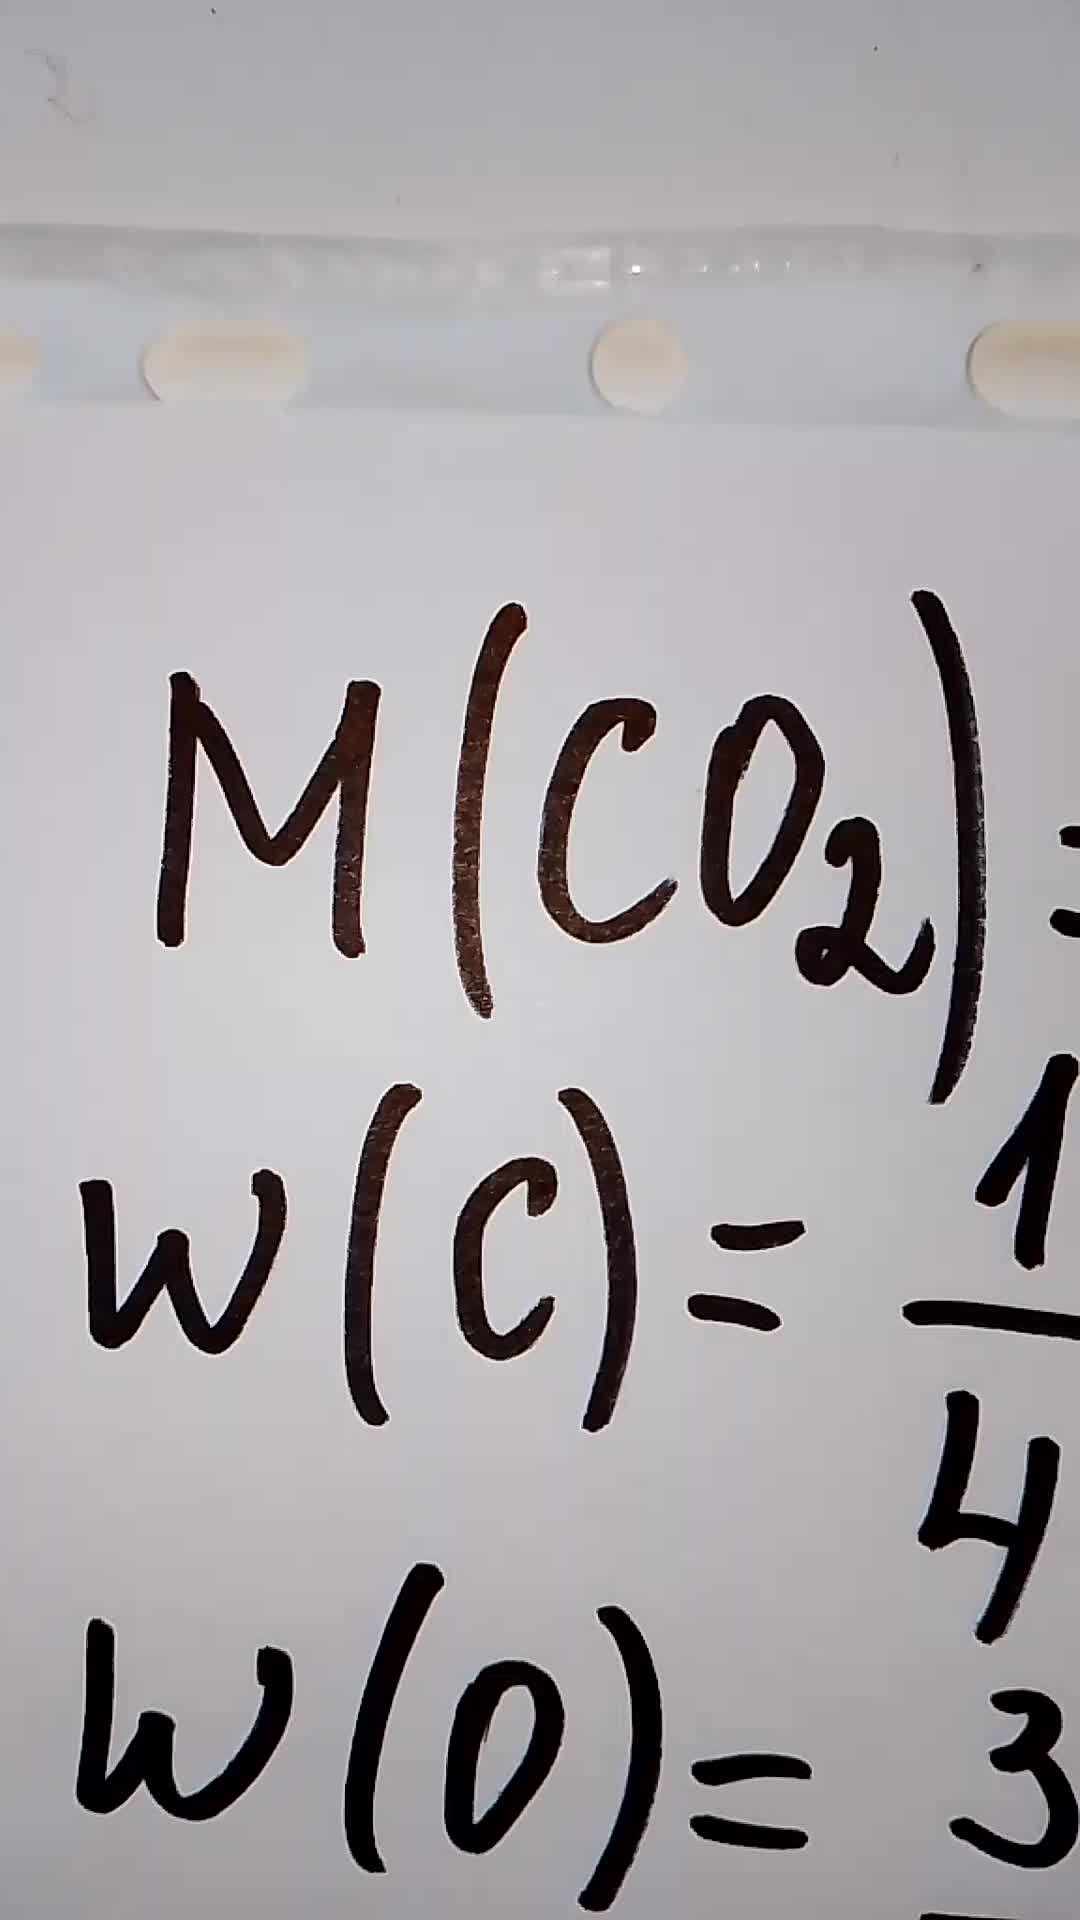 M(CO₂)=
W(C)= 1
4
W(O)= 3